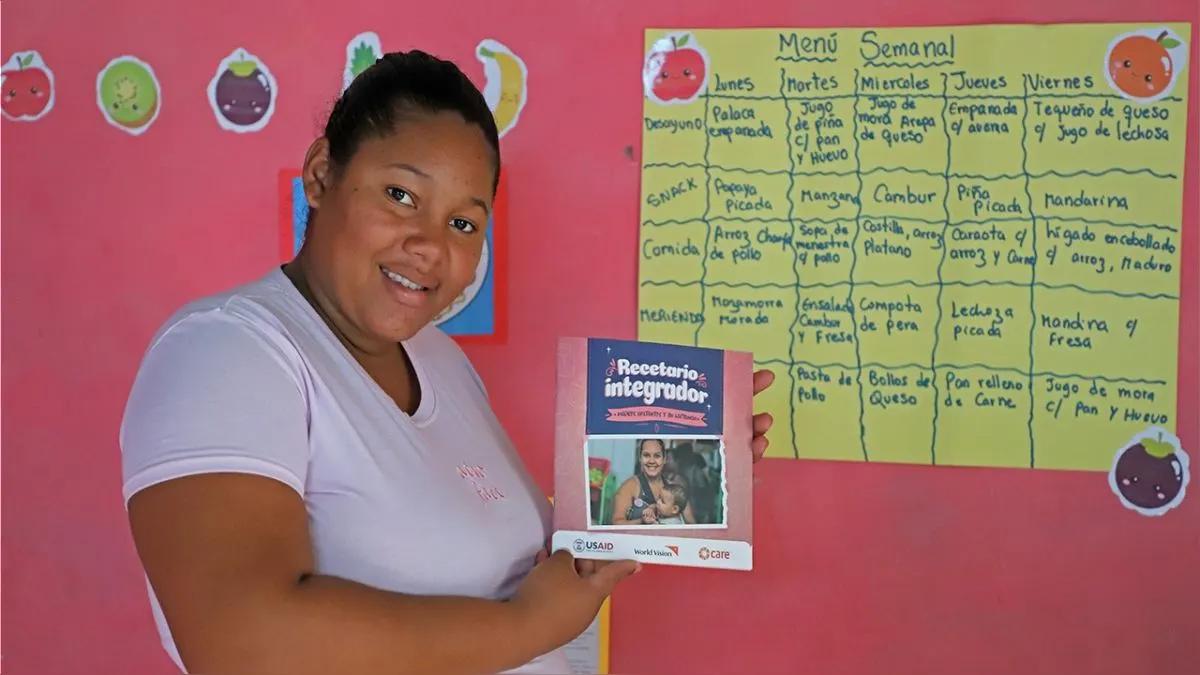 Menú Semanal
Lunes Martes Miercoles Jueves Viernes
Desayuno
Palaca
empanada
Jugo
de piña
c/ pan
y Huevo
Jugo de
mora Arepa
de queso
Empanada
c/ avena
Tequeño de queso
c/ Jugo de lechosa
SNACK
Papaya
Picada
Manzana
Cambur
Piña
Picada
Mandarina
Comida
Arroz Chaufa
de pollo
Sopa de
menestra
c/ pollo
Costilla, arroz
Platano
Caraota c/
arroz y Carne
hígado encebollado
c/ arroz, Maduro
MERIENDA
Mazamorra
Morada
Ensalada
Cambur
y Fresa
Compota
de pera
Lechoza
picada
Mandina c/
Fresa
Pasta de
Pollo
Bollos de
Queso
Pan relleno
de Carne
Jugo de mora
c/ Pan y Huevo
Recetario
integrador
USAID World Vision care